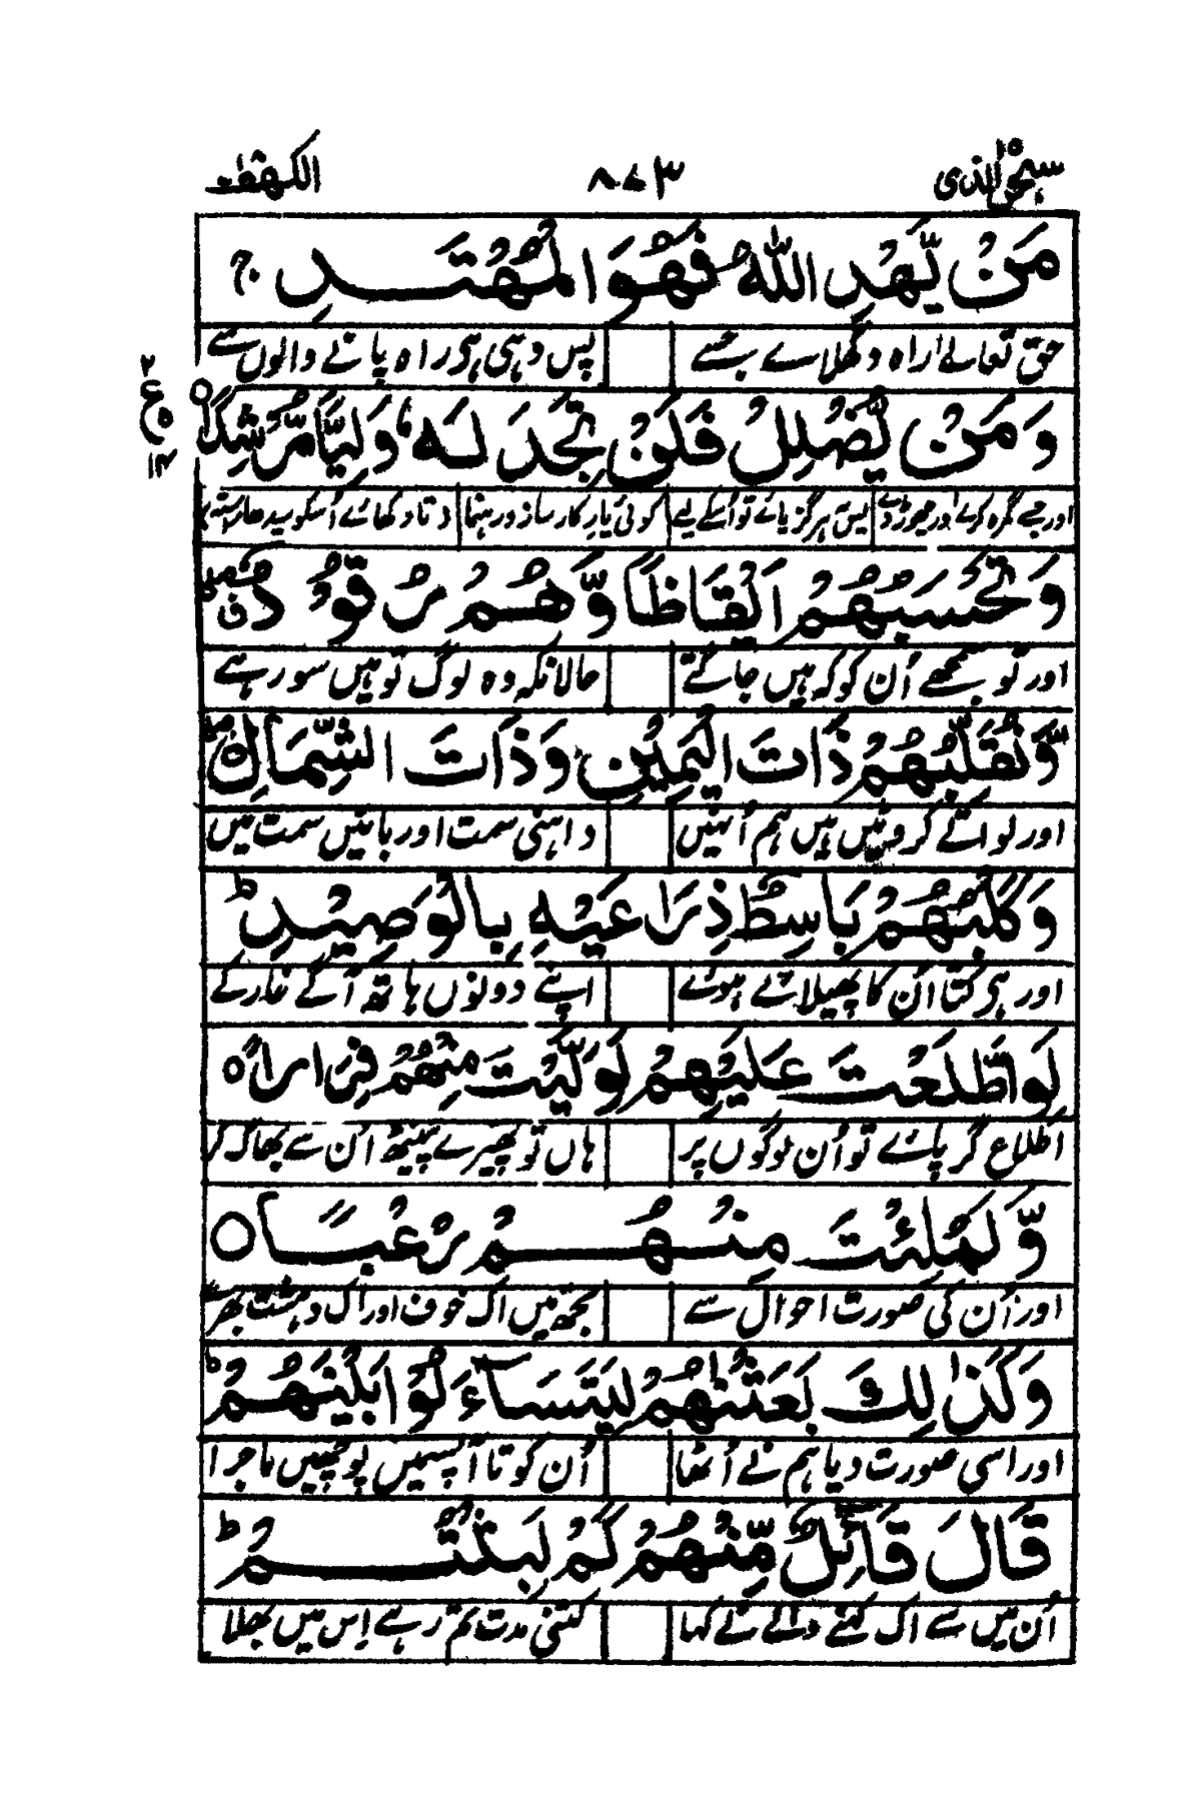 سبحٰن الذی ۱۵ ۸۷۳ الکهف
مَنْ یَّهْدِ اللّٰهُ فَهُوَ الْمُهْتَدِ ج
حق تعالےٰ راہ دکھلاے جسے پس وہی ہی راہ پانے والوں سے
وَمَنْ یُّضْلِلْ فَلَنْ تَجِدَ لَهٗ وَلِیًّا مُّرْشِدًا ○
۲ ع ۵ ۱۴
اور جسے گمرہ کرے اور چھوڑدے پس ہرگز پائے تو اُسکے لیے کوئی یار کارساز ورہنما تا دکھائے اُسکو سیدھا راستہ
وَتَحْسَبُهُمْ اَیْقَاظًا وَّهُمْ رُقُوْدٌ
اور تو سمجھے اُن کو کہ ہیں جاگتے حالانکہ وہ لوگ تو ہیں سو رہے
وَّنُقَلِّبُهُمْ ذَاتَ الْیَمِیْنِ وَذَاتَ الشِّمَالِ
اور لواتے کروٹیں ہیں ہم اُنہیں داہنی سمت اور بائیں سمت میں
وَکَلْبُهُمْ بَاسِطٌ ذِرَاعَیْهِ بِالْوَصِیْدِ ط
اور ہی کتا اُن کا پھیلائے ہوئے اپنے دونوں ہاتھ آگے غار کے
لَوِاطَّلَعْتَ عَلَیْهِمْ لَوَلَّیْتَ مِنْهُمْ فِرَارًا
اطلاع گر پائے تو اُن لوگوں پر ہاں تو پھیرے پیٹھ اُن سے بھاگ کر
وَّلَمُلِئْتَ مِنْهُمْ رُعْبًا ○
اور اُن کی صورت احوال سے تجھ میں اک خوف اور اک دہشت بھرے
وَکَذٰلِكَ بَعَثْنٰهُمْ لِیَتَسَآءَلُوْا بَیْنَهُمْ ط
اور اسی صورت دیا ہم نے اُٹھا اُن کو تا آپسمیں پوچھیں ماجرا
قَالَ قَآئِلٌ مِّنْهُمْ کَمْ لَبِثْتُمْ ط
اُن میں سے اک کہنے والے نے کہا کتنی مدت تم رہے اِس میں بھلا